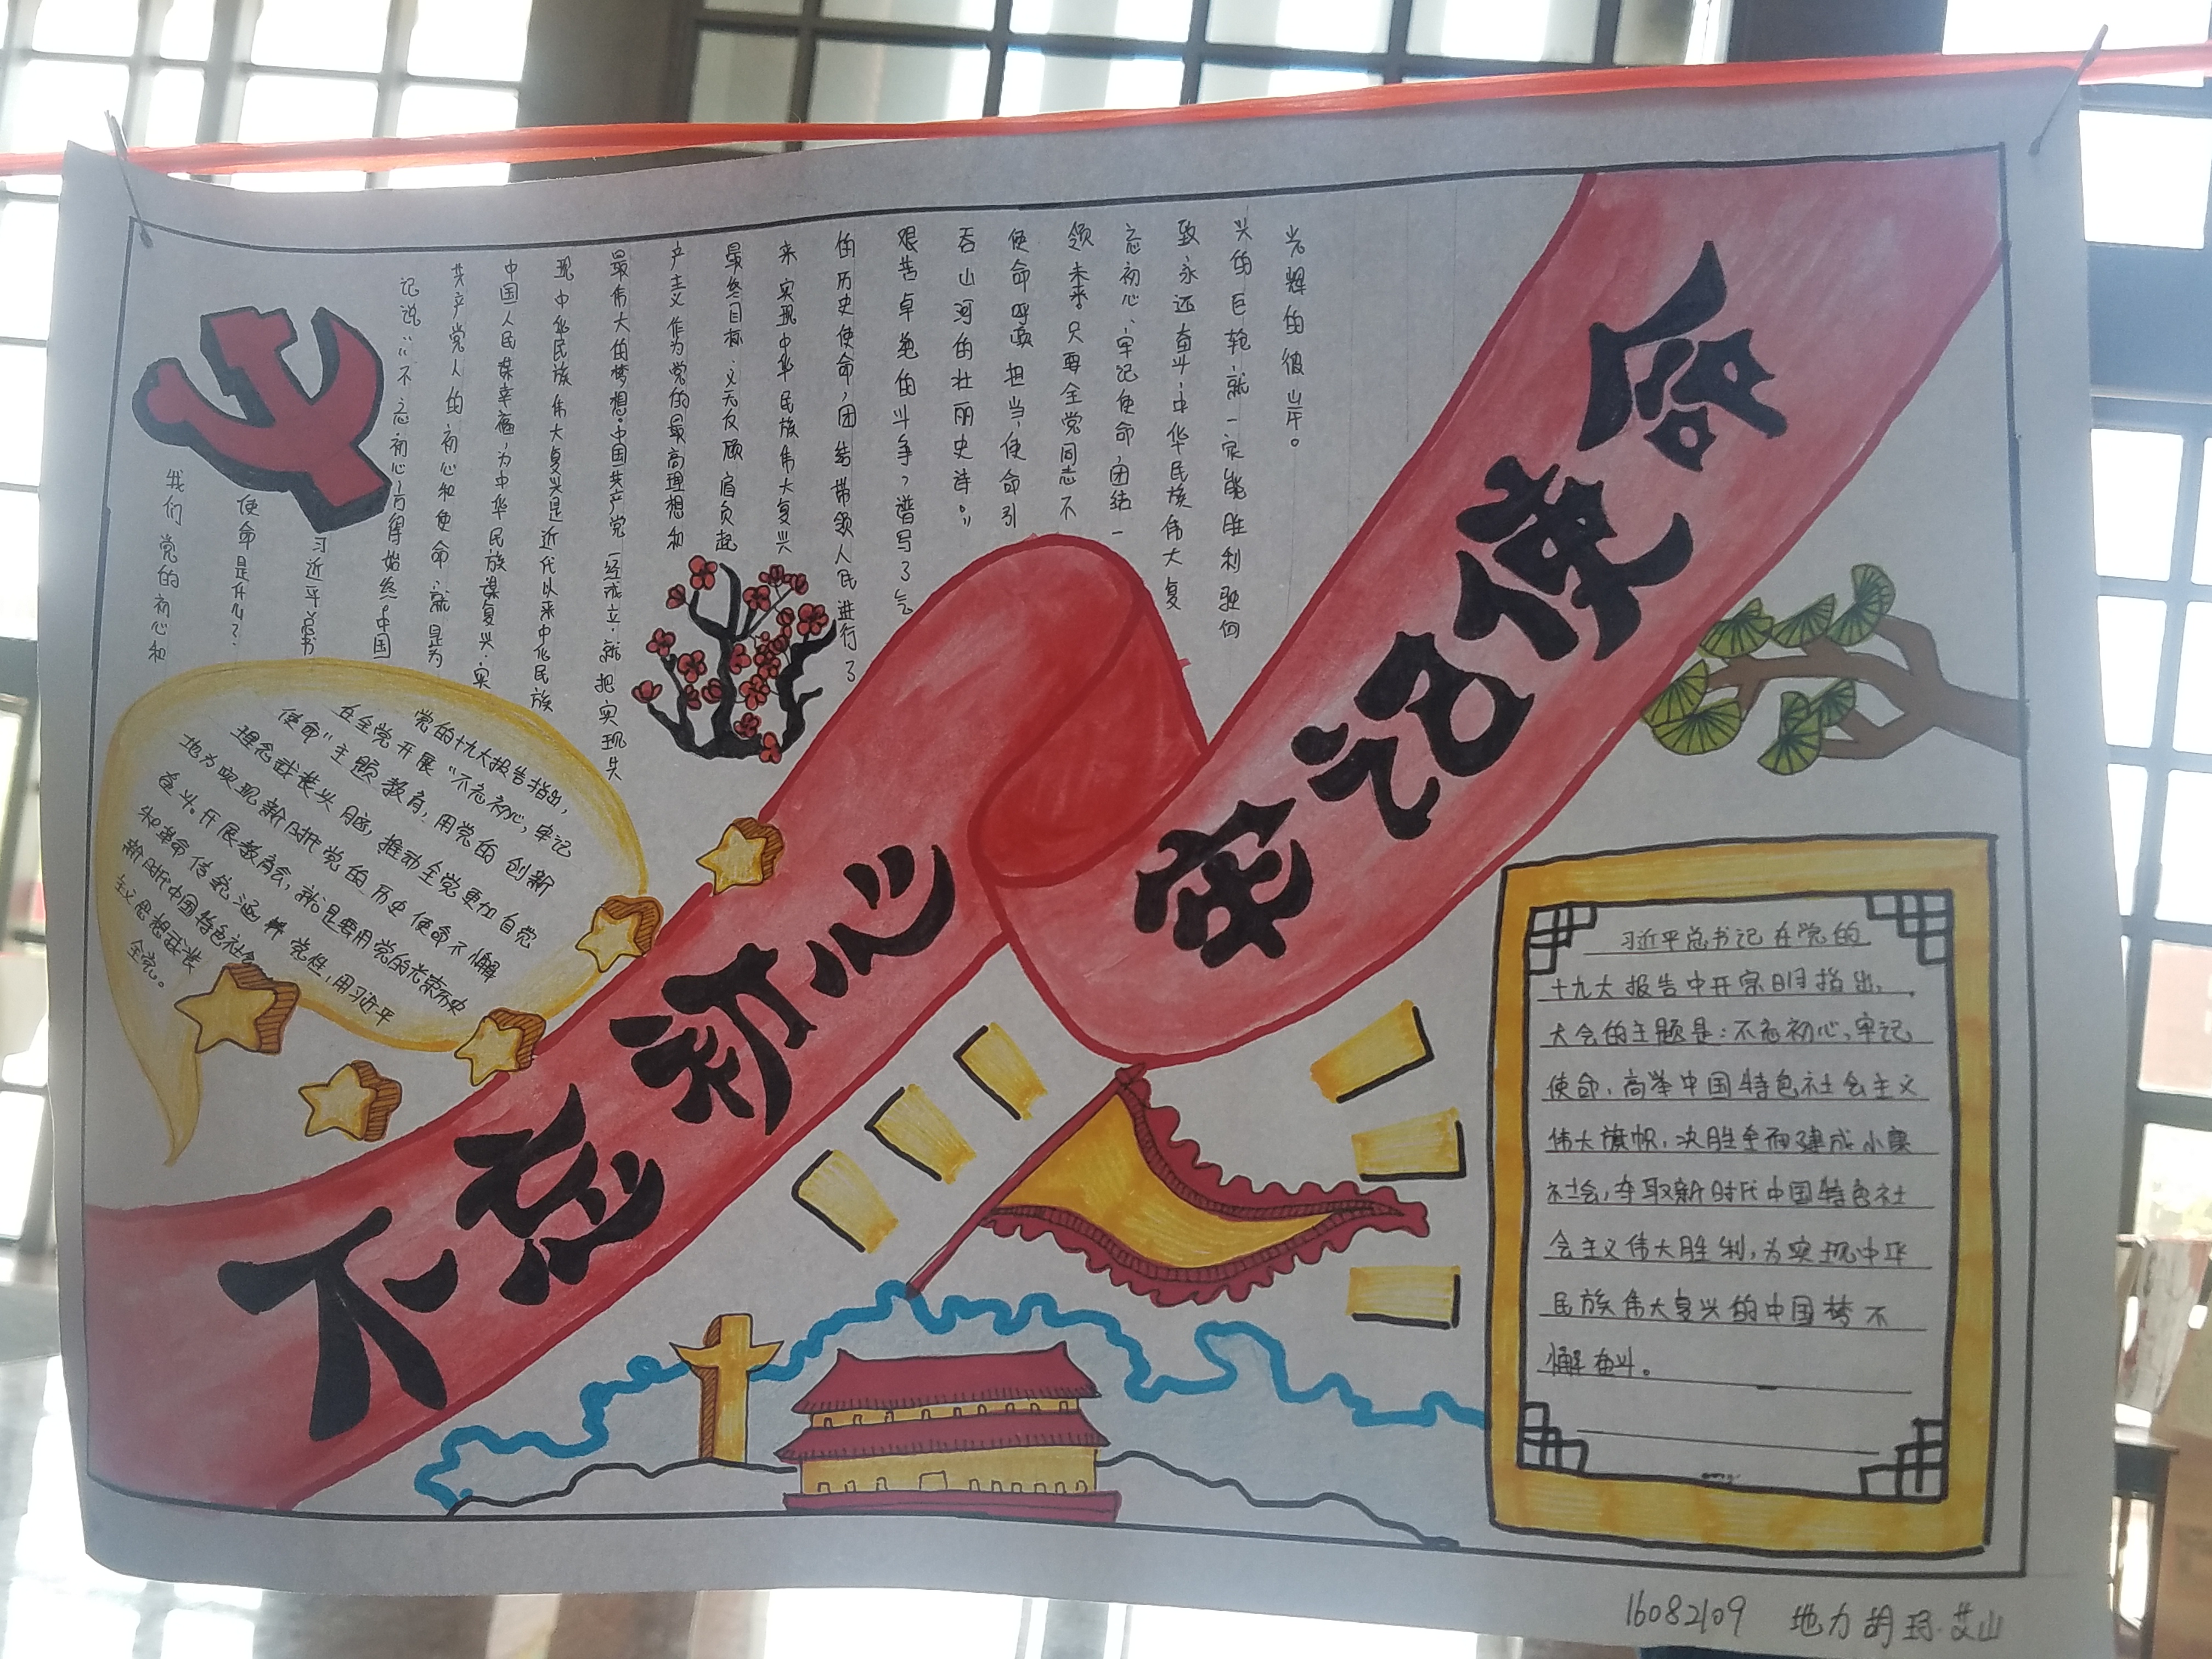 不忘初心
牢记使命
我们党的初心和
使命是什么？
习近平总书
记说：“不忘初心，方得始终，中国
共产党人的初心和使命，就是为
中国人民谋幸福，为中华民族谋复兴。实
现中华民族伟大复兴是近代以来中华民族
最伟大的梦想。中国共产党一经成立，就把实现共
产主义作为党的最高理想和
最终目标，义无反顾肩负起
来实现中华民族伟大复兴
的历史使命，团结带领人民进行了
艰苦卓绝的斗争，谱写了气
吞山河的壮丽史诗。”
使命呼唤担当，使命引
领未来。只要全党同志不
忘初心、牢记使命，团结一
致永远奋斗，中华民族伟大复
兴的巨轮，就一定能胜利驶向
光辉的彼岸。
党的十九大报告指出，
在全党开展“不忘初心，牢记
使命”主题教育，用党的创新
理念武装头脑，推动全党更加自觉
地为实现新时代党的历史使命不懈
奋斗。开展教育会，就是要用党的光荣历史
和革命传统涵养党性，用习近平
新时代中国特色社会
主义思想武装
全党。
习近平总书记在党的
十九大报告中开宗明指出，
大会的主题是：不忘初心，牢记
使命，高举中国特色社会主义
伟大旗帜，决胜全面建成小康
社会，夺取新时代中国特色社
会主义伟大胜利，为实现中华
民族伟大复兴的中国梦不
懈奋斗。
16082109 地力胡玛·艾山